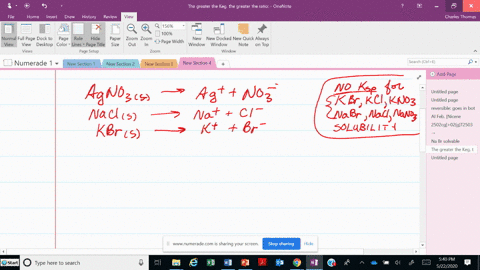 The greater the Kag, the greater the ratio. - OneNote
Charles Thomas
File
Home
Insert
Draw
History
Review
View
Normal View
Full Page View
Dock to Desktop
Page Color
Rule Lines
Hide Page Title
Zoom Out
Zoom In
150%
100%
Page Width
New Window
New Docked Window
New Quick Note
Always on Top
Numerade 1
New Section 1
New Section 2
New Section 3
New Section 4
AgNO3(s) → Ag+ + NO3-
NaCl(s) → Na+ + Cl-
KBr(s) → K+ + Br-
NO Ksp for
KBr, KCl, KNO3
NaBr, NaCl, NaNO3
SOLUBILITY
Add Page
Untitled page
Untitled page
reversible: goes in bot
Untitled page
Na Br soluable
The greater the Kag, t
Untitled page
www.numerade.com is sharing your screen.
Stop sharing
Hide
Start
Type here to search
5:40 PM
5/22/2020